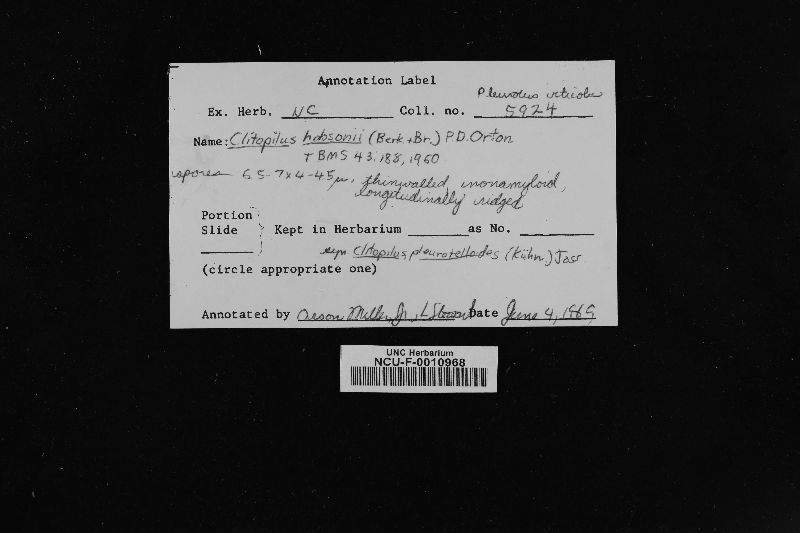 Annotation Label
Pleurotus
Ex. Herb. NC Coll. no. 5924
Name: Clitopilus hobsonii (Berk + Br.) P.D. Orton
TBMS 43:188, 1960
spores 6.5-7 x 4-4.5 µ, thinwalled, nonamyloid,
longitudinally ridged
Portion
Slide } Kept in Herbarium ______ as No. ______
syn Clitopilus pleurotelloides (Kühn.) Joss
(circle appropriate one)
Annotated by Orson Miller, Jr., L Stewart Date June 4, 1969
UNC Herbarium
NCU-F-0010968